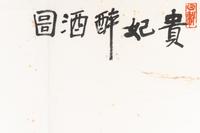 貴妃醉酒圖